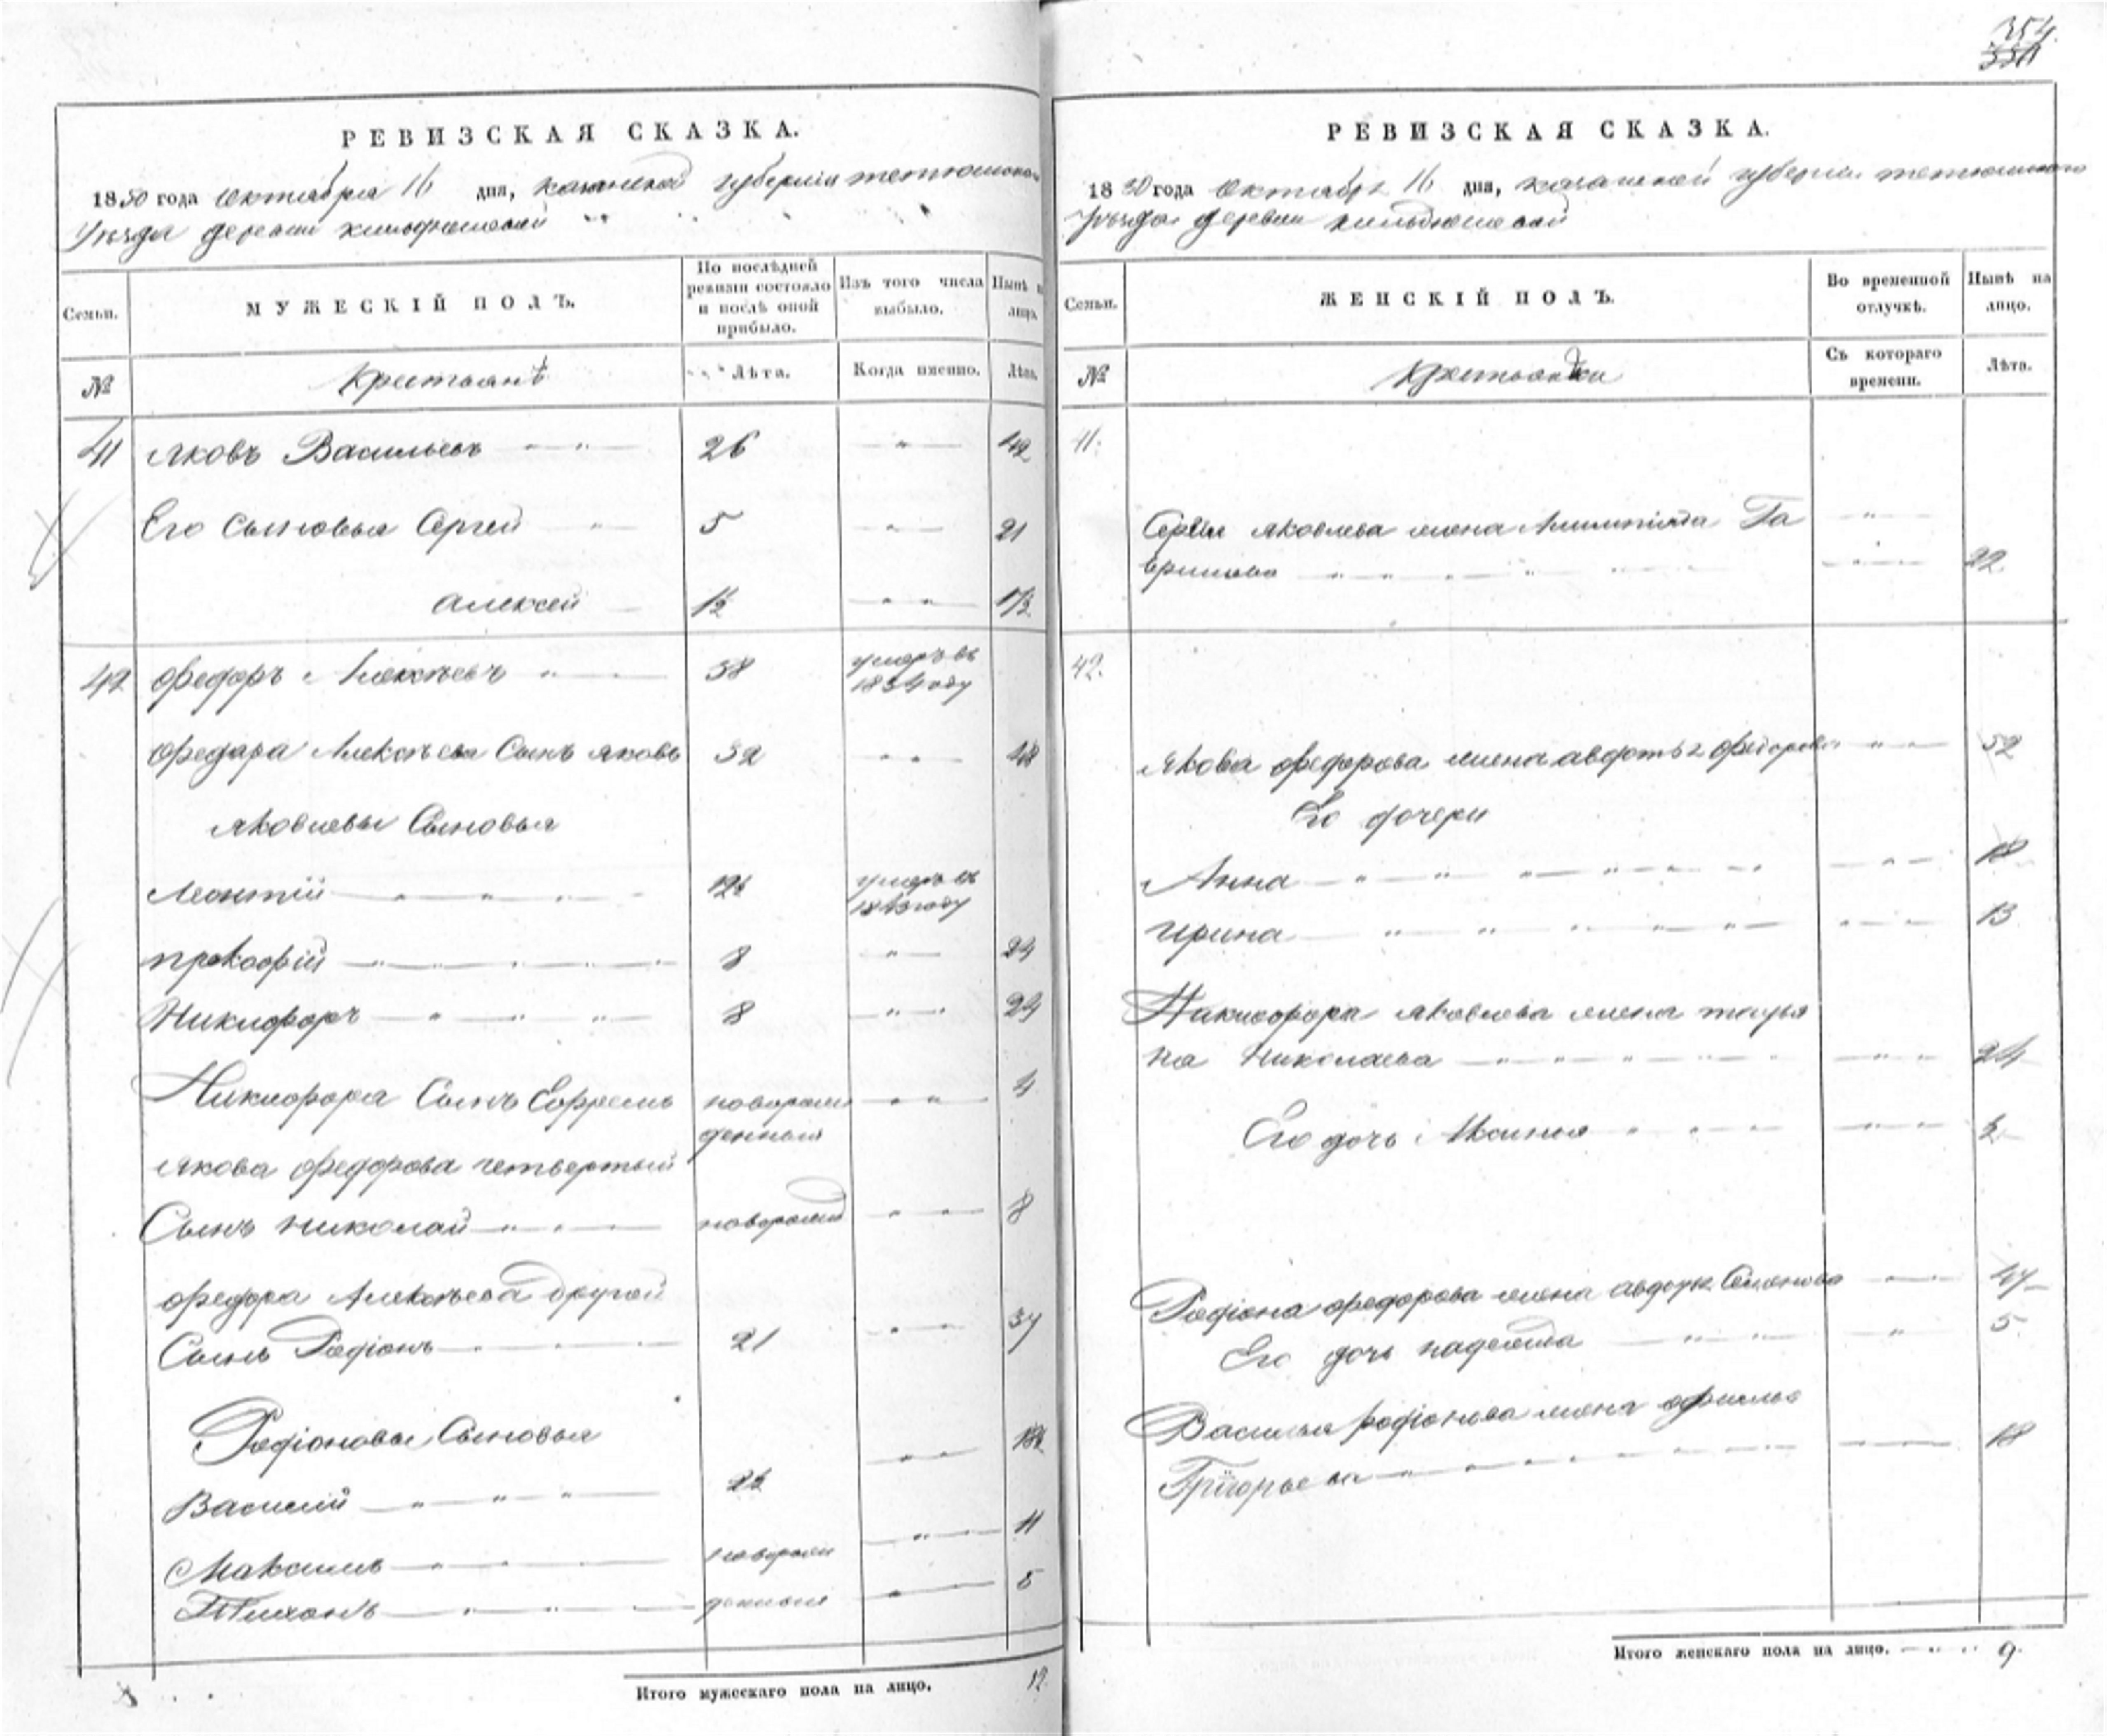 354.
РЕВИЗСКАЯ СКАЗКА.
1850 года Октября 16 дня, казанской губернии тетюшскаго
Уѣзда деревни кильдюшевой
Семьи. МУЖЕСКІЙ ПОЛЪ. По послѣдней ревизіи состояло и послѣ оной прибыло. Изъ того числа выбыло. Нынѣ на лицо.
№ Крестьянѣ Лѣта. Когда именно. Лѣта.
41 яковъ Васильевъ 26 42
Его Сыновья Сергей 5 21
алексей 1/2
42 федоръ Алексѣевъ 58 умеръ въ 1834 году
федара Алексѣева Сынъ яковъ 32 48
яковлевы Сыновья
леонтій умеръ въ 1843 году
прокофій 8 24
Никифоръ 8 24
Никифора Сынъ Ефремъ новорож
денныя 4
якова федорова четвертый
Сынъ николай новорожд 8
федора Алексѣева другой
Сынъ Родіонъ 21 37
Родіоновы Сыновья
Василій
Максимъ новорож 11
Тихонъ денныя 5
Итого мужескаго пола на лицо. 12.
РЕВИЗСКАЯ СКАЗКА.
1850 года Октября 16 дня, казанской губернии тетюшскаго
Уѣзда деревни кильдюшевой
Семьи. ЖЕНСКІЙ ПОЛЪ. Во временной отлучкѣ. Нынѣ на лицо.
№ Крестьянки Съ котораго времени. Лѣта.
41.
яковлева жена Га
врилова 22.
42.
якова федорова жена авдотья федорова 52
Его дочери
Анна 18
Ирина 13
Никифора яковлева жена татья
на николаева 24
Его дочь Аксинья
Родіона федорова жена Семенова 47
Его дочь надежда 5
Василья родіонова жена
Григорьева 18
Итого женскаго пола на лицо. 9.